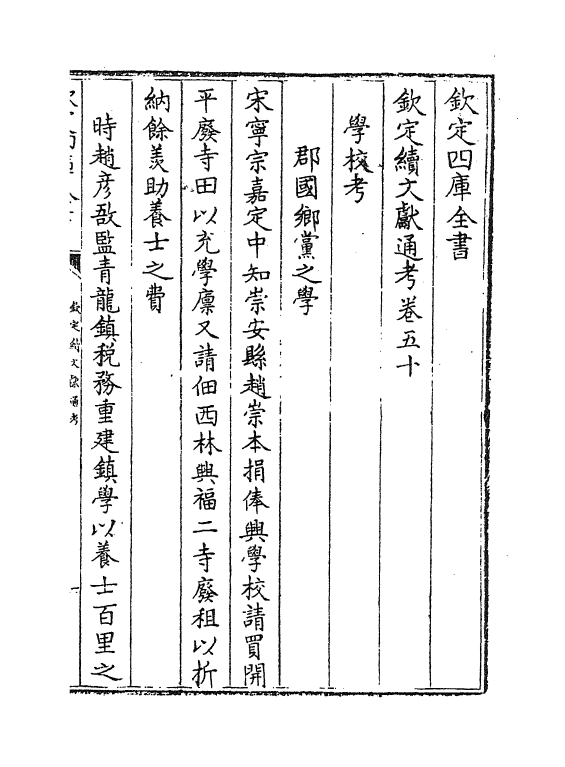 欽定四庫全書
欽定續文獻通考卷五十
學校考
郡國鄉黨之學
宋寧宗嘉定中知崇安縣趙崇本捐俸興學校請買開
平廢寺田以充學廩又請佃西林興福二寺廢租以折
納餘羡助養士之費
時趙彦敔監青龍鎮税務重建鎮學以養士百里之
欽定續文獻通考
一